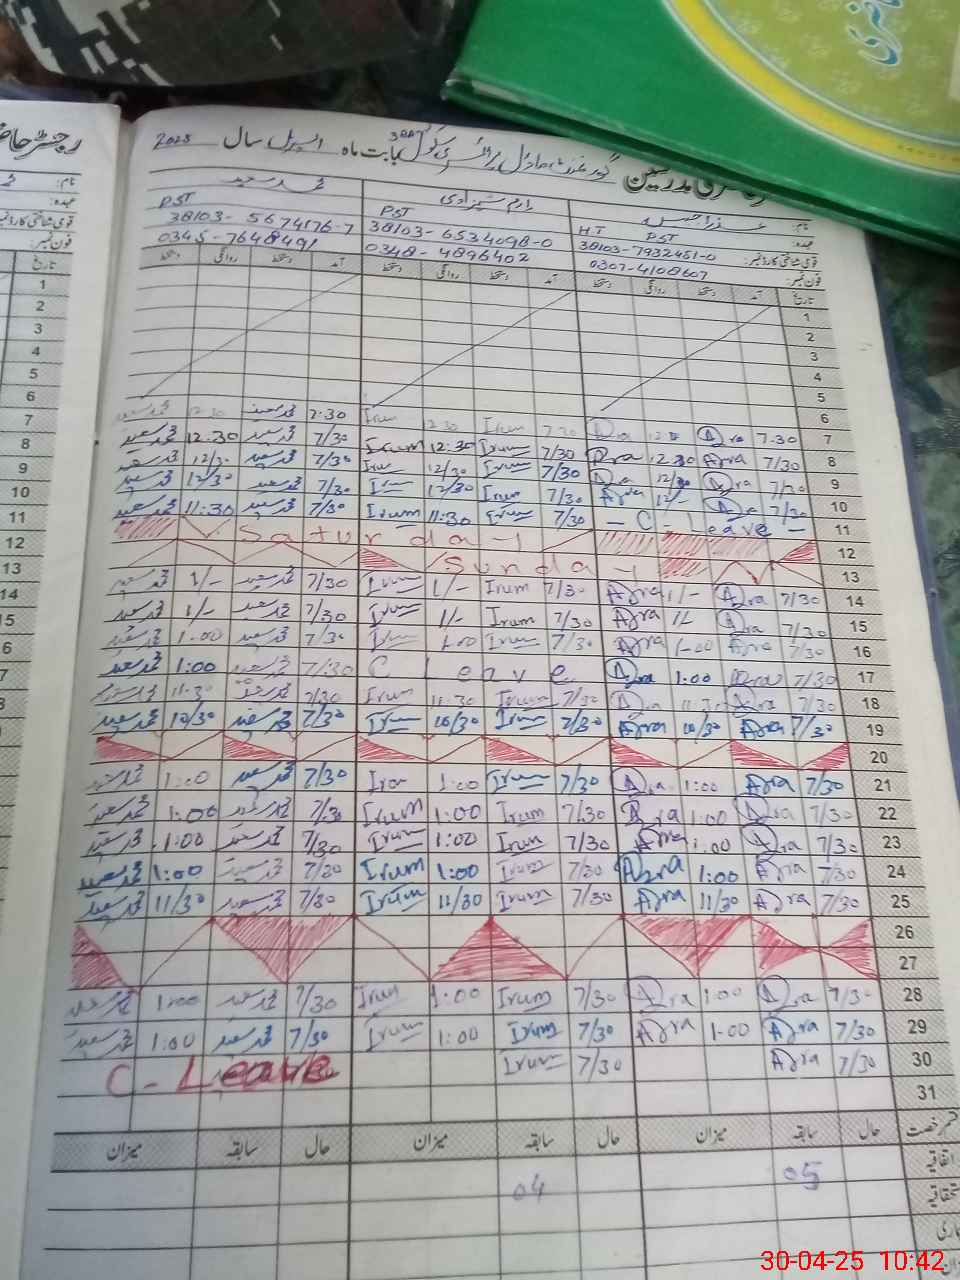 رجسٹر حاضری مدرسین گورنمنٹ ماڈل پرائمری سکول بابت ماہ اپریل سال 2025
نام: عذرا محمد سعید
عہدہ: HT PST PST PST
قومی شناختی کارڈ نمبر: 38103-7932451-0 38103-6534098-0 38103-5674176-7
فون نمبر: 0307-4108607 0348-4896402 0345-7648491
تاریخ آمد دستخط روانگی دستخط آمد دستخط روانگی دستخط آمد دستخط روانگی دستخط
1
2
3
4
5
6
7 7:30 Azra Azra 7:30 Irum 12:30 Irum 7:30 محمد سعید 12:30 محمد سعید
8 7/30 Azra 12:30 Azra 7/30 Irum 12:30 Irum 7/30 محمد سعید 12:30 محمد سعید
9 Azra 12/30 Azra 7/30 Irum 12/30 Irum 7/30 محمد سعید 12/30 محمد سعید
10 Azra 12/- Azra 7/30 Irum 12/30 Irum 7/30 محمد سعید 12/30 محمد سعید
11 - C - Leave - 7/30 Irum 11:30 Irum 7/30 محمد سعید 11:30 محمد سعید
12 Saturday
13 Sunday
14 7/30 Azra 1/- Azra 7/30 Irum 1/- Irum 7/30 محمد سعید 1/- محمد سعید
15 7/30 Azra 1/- Azra 7/30 Irum 1/- Irum 7/30 محمد سعید 1/- محمد سعید
16 7/30 Azra 1-00 Azra 7/30 Irum 1-00 Irum 7/30 محمد سعید 1-00 محمد سعید
17 7/30 Azra 1:00 Azra C Leave 7/30 محمد سعید 1:00 محمد سعید
18 7/30 Azra 11:30 Azra 7/30 Irum 11:30 Irum 7/30 محمد سعید 11:30 محمد سعید
19 7/30 Azra 10/30 Azra 7/30 Irum 10/30 Irum 7/30 محمد سعید 10/30 محمد سعید
20
21 7/30 Azra 1:00 Azra 7/30 Irum 1:00 Irum 7/30 محمد سعید 1:00 محمد سعید
22 7/30 Azra 1:00 Azra 7/30 Irum 1:00 Irum 7/30 محمد سعید 1:00 محمد سعید
23 7/30 Azra 1:00 Azra 7/30 Irum 1:00 Irum 7/30 محمد سعید 1:00 محمد سعید
24 7/30 Azra 1:00 Azra 7/30 Irum 1:00 Irum 7/30 محمد سعید 1:00 محمد سعید
25 7/30 Azra 11/30 Azra 7/30 Irum 11/30 Irum 7/30 محمد سعید 11/30 محمد سعید
26
27
28 7/30 Azra 1:00 Azra 7/30 Irum 1:00 Irum 7/30 محمد سعید 1:00 محمد سعید
29 7/30 Azra 1-00 Azra 7/30 Irum 1:00 Irum 7/30 محمد سعید 1:00 محمد سعید
30 7/30 Azra 7/30 Irum C - Leave
31
حال سابقہ میزان حال سابقہ میزان حال سابقہ میزان
اتفاقیہ 05 04
30-04-25 10:42